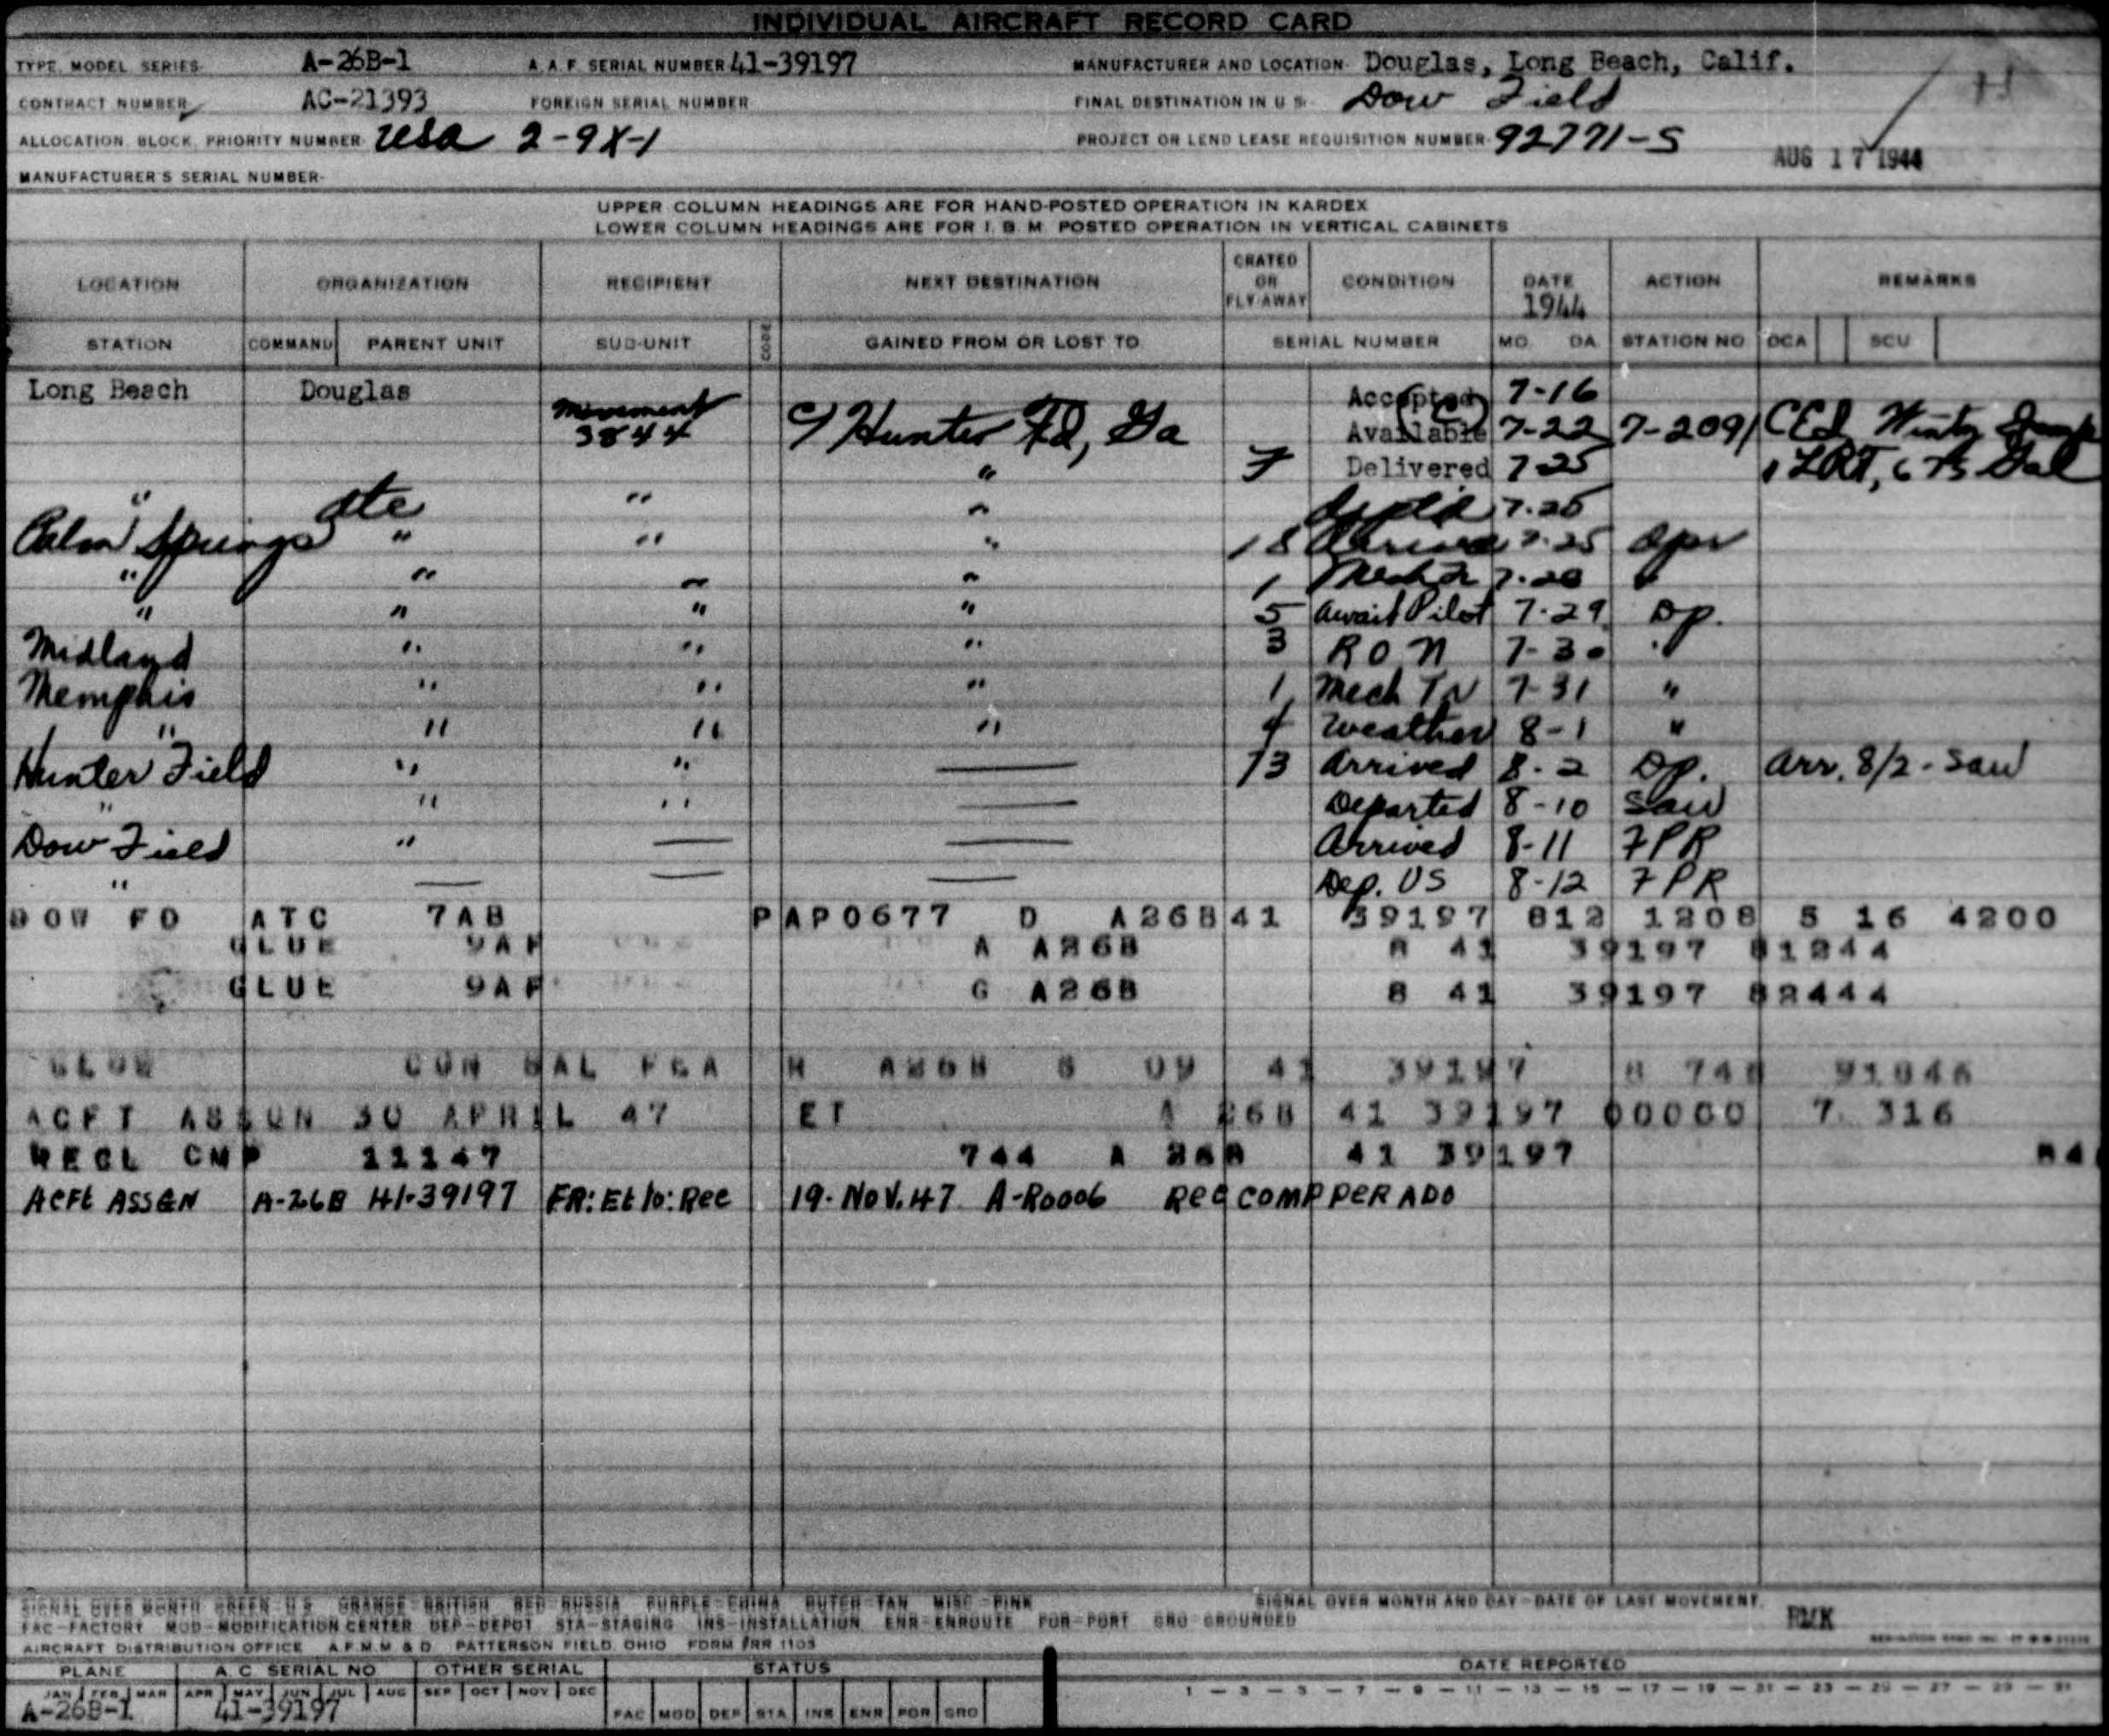 INDIVIDUAL AIRCRAFT RECORD CARD
TYPE, MODEL, SERIES A-26B-1 A.A.F. SERIAL NUMBER 41-39197 MANUFACTURER AND LOCATION Douglas, Long Beach, Calif.
CONTRACT NUMBER AC-21393 FOREIGN SERIAL NUMBER FINAL DESTINATION IN U S Dow Field
ALLOCATION, BLOCK, PRIORITY NUMBER USA 2-9X-1 PROJECT OR LEND LEASE REQUISITION NUMBER 92771-S
AUG 17 1944
MANUFACTURER'S SERIAL NUMBER-
UPPER COLUMN HEADINGS ARE FOR HAND-POSTED OPERATION IN KARDEX
LOWER COLUMN HEADINGS ARE FOR I. B. M. POSTED OPERATION IN VERTICAL CABINETS
LOCATION ORGANIZATION RECIPIENT NEXT DESTINATION CRATED OR FLY-AWAY CONDITION DATE 1944 ACTION REMARKS
STATION COMMAND PARENT UNIT SUB-UNIT CODE GAINED FROM OR LOST TO SERIAL NUMBER MO. DA. STATION NO OCA SCU
Long Beach Douglas Accepted 7-16
movement 3844 Hunter Fd, Ga Available 7-22 7-2091
" 7 Delivered 7-25
" atc " " 7-25
Palm Springs " " " 18 Arrived 7-25 Opr
" " " " 1
" " " " 5 Await Pilot 7-29 Op.
Midland " " " 3 RON 7-30 "
Memphis " " " 1 Mech Tr 7-31 "
" " " " 4 Weather 8-1 "
Hunter Field " " — 13 Arrived 8-2 Op. Arr. 8/2 - Saw
" " " — Departed 8-10 Saw
Dow Field " — — Arrived 8-11 7PR
" — — — Dep. US 8-12 7PR
DOW FD ATC 7AB P AP0677 D A26B 41 39197 812 1208 5 16 4200
GLUE 9AF A A26B 8 41 39197 81244
GLUE 9AF G A26B 8 41 39197 82444
41 39197
ACFT ASSGN 30 APRIL 47 ET A 26B 41 39197 00000 7 316
RECL CMP 11147 744 A 26B 41 39197
ACFt ASSGN A-26B 41-39197 FR: Et to: Rec 19-Nov.47 A-R0006 Rec COMP PER ADO
SIGNAL OVER MONTH GREEN-U.S. ORANGE-BRITISH RED-RUSSIA PURPLE-CHINA DUTCH-TAN MISC-PINK SIGNAL OVER MONTH AND DAY-DATE OF LAST MOVEMENT.
FAC-FACTORY MOD-MODIFICATION CENTER DEP-DEPOT STA-STAGING INS-INSTALLATION ENR-ENROUTE POR-PORT GRO-GROUNDED RMK
AIRCRAFT DISTRIBUTION OFFICE A.F.M.M & D. PATTERSON FIELD, OHIO FORM #RR 1103
PLANE A. C. SERIAL NO OTHER SERIAL STATUS DATE REPORTED
JAN FEB MAR APR MAY JUN JUL AUG SEP OCT NOV DEC 1 - 3 - 5 - 7 - 9 - 11 - 13 - 15 - 17 - 19 - 21 - 23 - 25 - 27 - 29 - 31
A-26B-1 41-39197 FAC MOD DEP STA INS ENR POR GRO